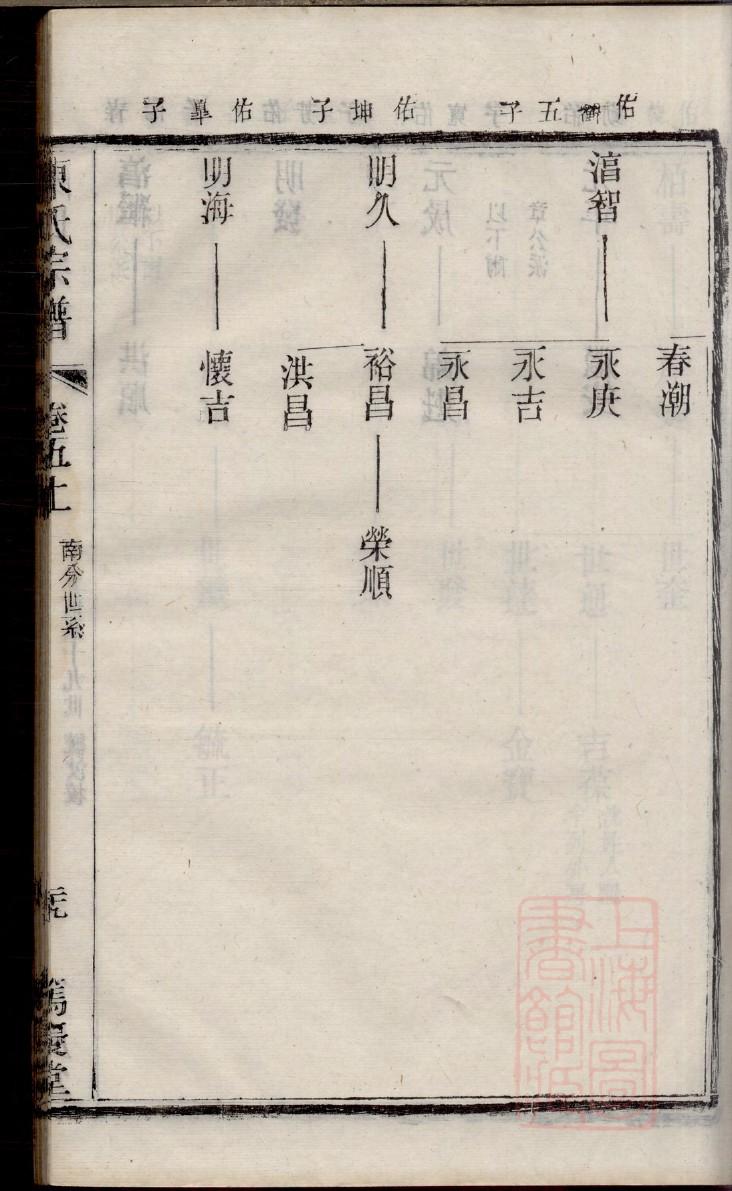 佑 五子
佑坤子
佑皐子
春潮
湻智
永庚
永吉
永昌
明久
裕昌
榮順
洪昌
明海
懷吉
陳氏宗譜
卷五上
南分世系
十九世
篤慶堂
上海圖書館藏